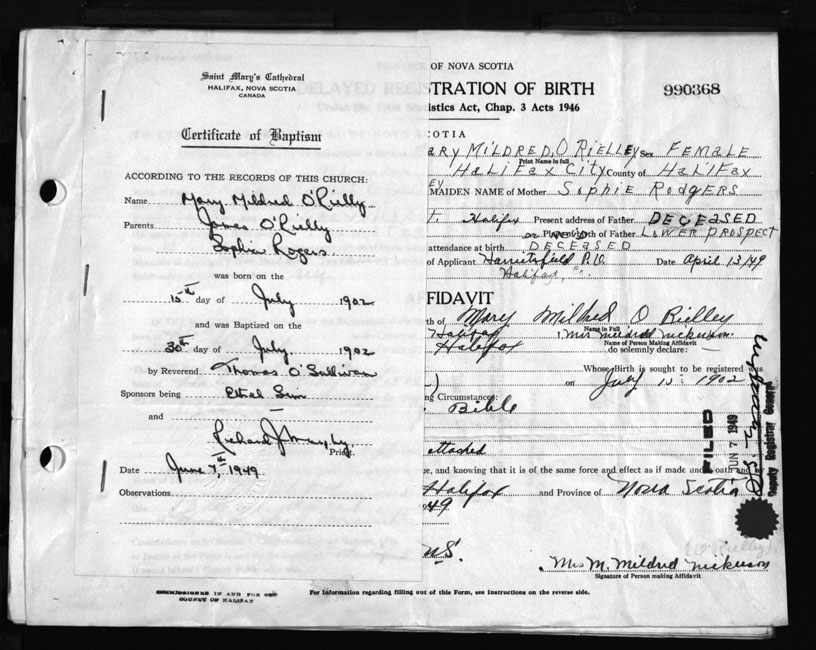 Saint Mary's Cathedral
HALIFAX, NOVA SCOTIA
CANADA
Certificate of Baptism
ACCORDING TO THE RECORDS OF THIS CHURCH:
Name Mary Mildred O'Rielly
Parents James O'Rielly
Sophia Rogers
was born on the
15th day of July 1902
and was Baptized on the
30th day of July 1902
by Reverend Thomas O'Sullivan
Sponsors being Ethel Sim
and
Richard J. Murphy
Priest.
Date June 7th, 1949.
Observations
COMMISSIONER IN AND FOR THE
COUNTY OF HALIFAX
OF NOVA SCOTIA
DELAYED REG
STRATION OF BIRTH
990368
istics Act, Chap. 3 Acts 1946
COTIA
ARY MILDRED O RIELLEY Sex FEMALE
Print Name in full
HALIFAX CITY County of HALIFAX
EY MAIDEN NAME of Mother SOPHIE RODGERS
T. Halifax Present address of Father DECEASED
Place of Birth of Father LOWER PROSPECT
attendance at birth DECEASED
of Applicant Harrietsfield P.O. Date April 13/49
Halifax,
FFIDAVIT
th of Mary Mildred O Rielley
Name in Full
Halifax I, Mrs Mildred Nickerson
Name of Person Making Affidavit
Halifax do solemnly declare:
Whose Birth is sought to be registered was
on July 15 1902
ng Circumstances:
Bible
attached
e, and knowing that it is of the same force and effect as if made under oath and
Halifax and Province of Nova Scotia
949
FILED
JUN 7 1949
Deputy Registrar General
(O'Rielley)
Mrs M. Mildred Nickerson
Signature of Person making Affidavit
For Information regarding filling out of this Form, see Instructions on the reverse side.